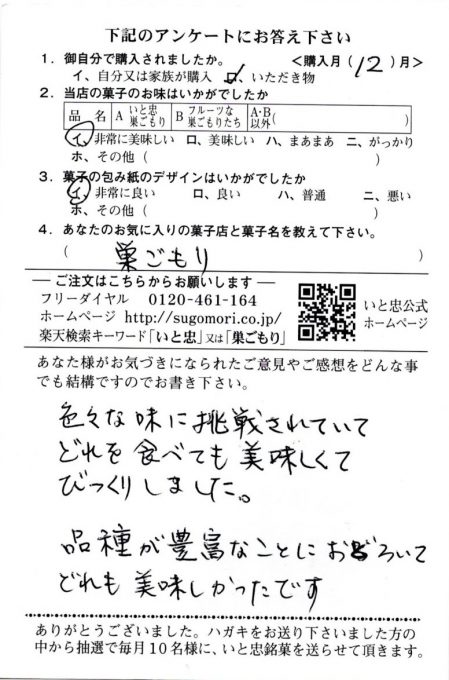 下記のアンケートにお答え下さい
1. 御自分で購入されましたか。 <購入月(12)月>
イ、自分又は家族が購入 ロ、いただき物
2. 当店の菓子のお味はいかがでしたか
品 名 A いと忠巣ごもり B フルーツな巣ごもりたち A・B以外( )
イ、非常に美味しい ロ、美味しい ハ、まあまあ ニ、がっかり
ホ、その他( )
3. 菓子の包み紙のデザインはいかがでしたか
イ、非常に良い ロ、良い ハ、普通 ニ、悪い
ホ、その他( )
4. あなたのお気に入りの菓子店と菓子名を教えて下さい。
( 巣ごもり )
― ご注文はこちらからお願いします ―
フリーダイヤル 0120-461-164
ホームページ http://sugomori.co.jp/
楽天検索キーワード「いと忠」又は「巣ごもり」
いと忠公式
ホームページ
あなた様がお気づきになられたご意見やご感想をどんな事
でも結構ですのでお書き下さい。
色々な味に挑戦されていて
どれを食べても美味しくて
びっくりしました。
品種が豊富なことにおどろいて
どれも美味しかったです
ありがとうございました。ハガキをお送り下さいました方の
中から抽選で毎月10名様に、いと忠銘菓を送らせて頂きます。